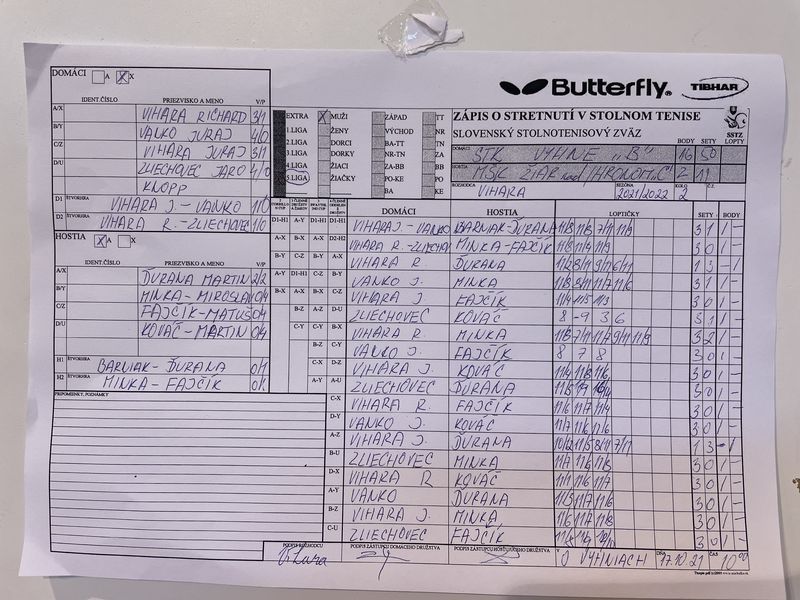 DOMÁCI A X
Butterfly TIBHAR
IDENT.ČÍSLO PRIEZVISKO A MENO V/P
A/X VIHARA RICHARD 3/1
B/Y VANKO JURAJ 4/0
C/Z VIHARA JURAJ 3/1
D/U ZLIECHOVEC JARO 4/0
KNOPP
D1 ŠTVORHRA VIHARA J - VANKO 1/0
D2 ŠTVORHRA VIHARA R. - ZLIECHOVEC 1/0
EXTRA MUŽI ZÁPAD TT
1.LIGA ŽENY VÝCHOD NR
2.LIGA DORCI BA-TT TN
3.LIGA DORKY NR-TN ZA
4.LIGA ŽIACI ZA-BB BB
5.LIGA ŽIAČKY PO-KE PO
BA KE
ZÁPIS O STRETNUTÍ V STOLNOM TENISE
SLOVENSKÝ STOLNOTENISOVÝ ZVÄZ SSTZ
BODY SETY LOPTY
DOMÁCI STK VYHNE "B" 16 50
HOSTIA MŠK ŽIAR nad/HRONOM "C" 2 11
ROZHODCA VIHARA SEZÓNA 2021/2022 KOLO 2 Č.Z.
HOSTIA A X
IDENT.ČÍSLO PRIEZVISKO A MENO V/P
A/X ĎURANA MARTIN 2/2
B/Y MINKA - MIROSLAV 0/4
C/Z FAJČÍK - MATÚŠ 0/4
D/U KOVÁČ - MARTIN 0/4
H1 ŠTVORHRA BARNIAK - ĎURANA 0/1
H2 ŠTVORHRA MINKA - FAJČÍK 0/1
PRIPOMIENKY, POZNÁMKY
DOMÁCI HOSTIA LOPTIČKY SETY BODY
D1-H1 VIHARA J. - VANKO BARNIAK - ĎURANA 3 1 1 -
D2-H2 VIHARA R. - ZLIECHOV MINKA - FAJČÍK 3 0 1 -
A-X VIHARA R. ĎURANA 1 3 - 1
B-Y VANKO J. MINKA 3 1 1 -
C-Z VIHARA J FAJČÍK 11/4 11/5 11/3 3 0 1 -
D-U ZLIECHOVEC KOVÁČ 8 -9 3 6 3 1 1 -
B-X VIHARA R. MINKA 3 2 1 -
VANKO J. FAJČÍK 8 7 8 3 0 1 -
D-Z VIHARA J. KOVÁČ 3 0 1 -
A-U ZLIECHOVEC ĎURANA 3 0 1 -
C-X VIHARA R. FAJČÍK 11/6 11/7 11/4 3 0 1 -
D-Y VANKO J. KOVÁČ 11/7 11/6 11/6 3 0 1 -
A-Z VIHARA J. ĎURANA 1 3 - 1
B-U ZLIECHOVEC MINKA 11/7 11/6 11/8 3 0 1 -
D-X VIHARA R KOVÁČ 11/4 11/6 11/7 3 0 1 -
A-Y VANKO ĎURANA 11/3 11/7 11/6 3 0 1 -
B-Z VIHARA J. MINKA 11/6 11/7 11/8 3 0 1 -
C-U ZLIECHOVEC FAJČÍK 3 0 1 -
PODPIS ROZHODCU PODPIS ZÁSTUPCU DOMÁCEHO DRUŽSTVA PODPIS ZÁSTUPCU HOSŤUJÚCEHO DRUŽSTVA V VYHNIACH DŇA 17.10.21 ČAS 10 00